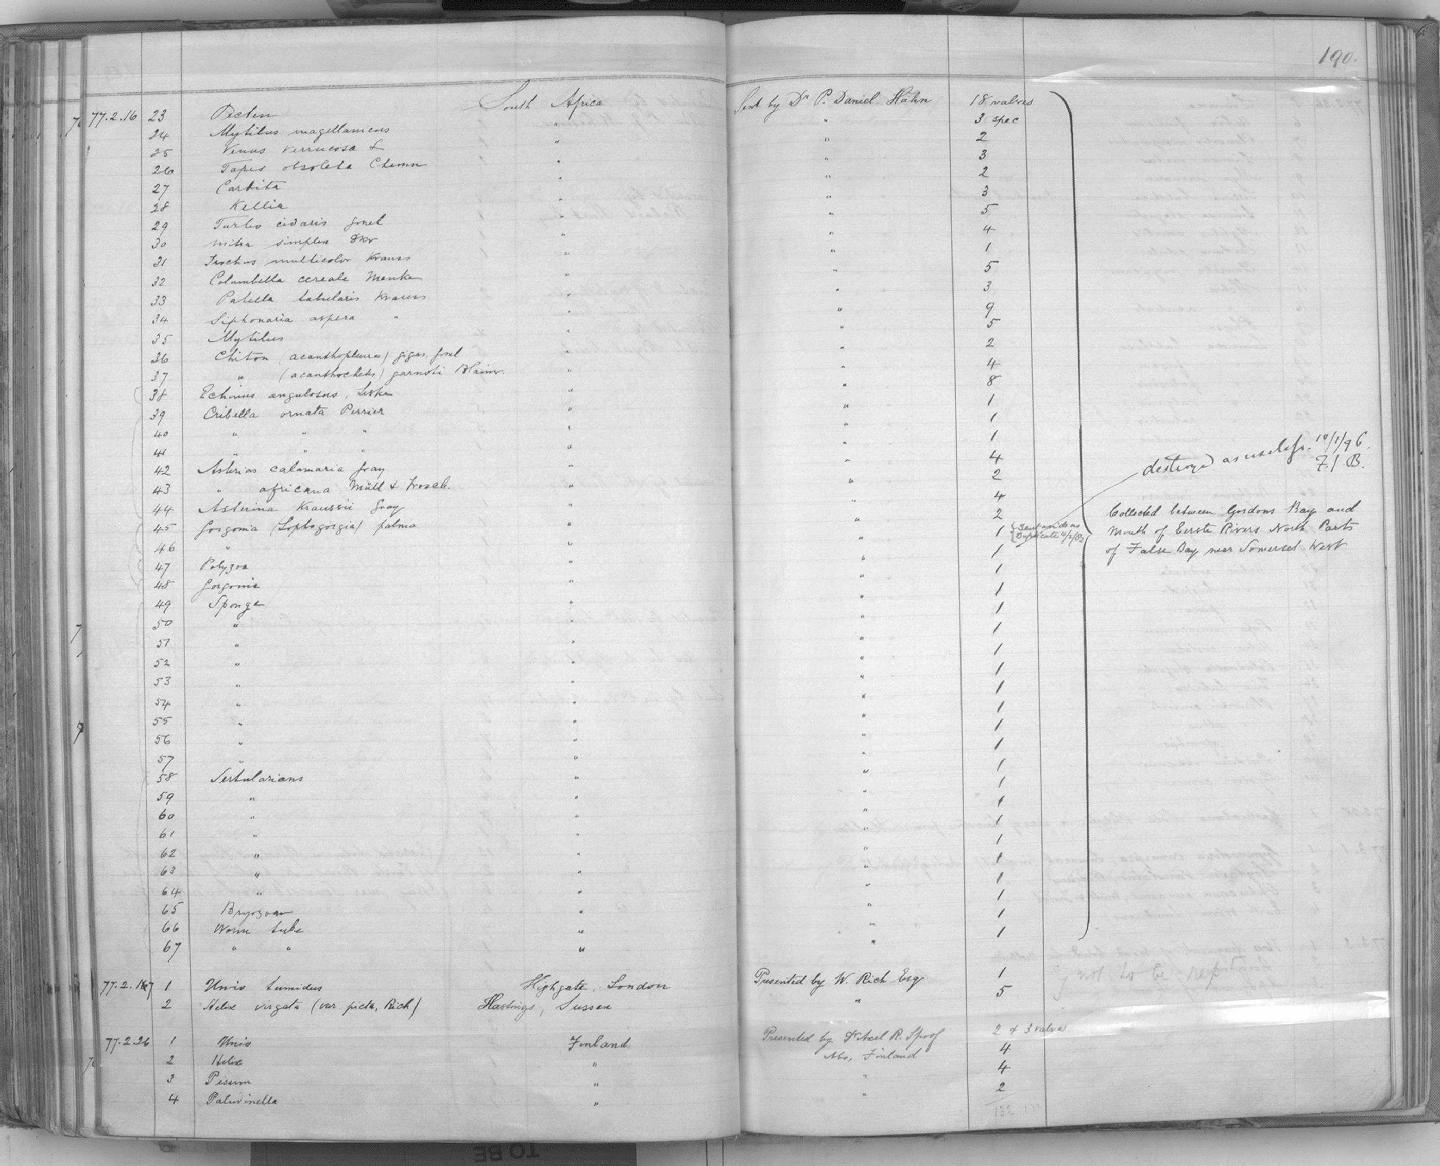 190.
77.2.16 23 Pecten South Africa Sent by Dr P. Daniel Hahn 18 valves
24 Mytilus magellanicus " " 3 spec
25 Venus verrucosa L " " 2
26 Tapes obsoleta Chemn " " 3
27 Cardita " " 2
28 Kellia " " 3
29 Turbo cidaris Gmel " " 5
30 Mitra simplex Dkr " " 4
31 Trochus multicolor Krauss " " 1
32 Columbella cereale Menke " " 5
33 Patella tabularis Krauss " " 3
34 Siphonaria aspera " " " 9
35 Mytilus " " 5
36 Chiton (acanthopleura) gigas, Gmel " " 2
37 " (acanthochetes) garnoti Blainv. " " 4
38 Echinus angulosus, Leske " " 8
39 Cribella ornata Perrier " " 1
40 " " " " " 1
41 " " " " " 4
42 Asterias calamaria Gray " " 2
43 " africana Müll & Trosch. " " 4
44 Asterina Kraussii Gray " " 2
45 Gorgonia (Lophogorgia) palma " " 1
46 " " " 1
47 Polyzoa " " 1
48 Gorgonia " " 1
49 Sponge " " 1
50 " " " 1
51 " " " 1
52 " " " 1
53 " " " 1
54 " " " 1
55 " " " 1
56 " " " 1
57 " " " 1
58 Sertularians " " 1
59 " " " 1
60 " " " 1
61 " " " 1
62 " " " 1
63 " " " 1
64 " " " 1
65 Bryozoan " " 1
66 Worm tube " " 1
67 " " " "
destroyed as useless. 10/1/96
F.J.B.
Collected between Gordons Bay and
Mouth of Eerste Rivers North Parts
of False Bay near Somerset West
77.2.17 1 Unio tumidus Highgate, London Presented by W. Rich Esq 1
not to be regist
2 Helix virgata (var picta, Rich) Hastings, Sussex " 5
77.2.26 1 Unio Finland Presented by Dr Axel R. Spoof 2 & 3 valves
Abo, Finland
2 Helix " 4
3 Pisum " " 4
4 Paluvinella " " 2
TO BE